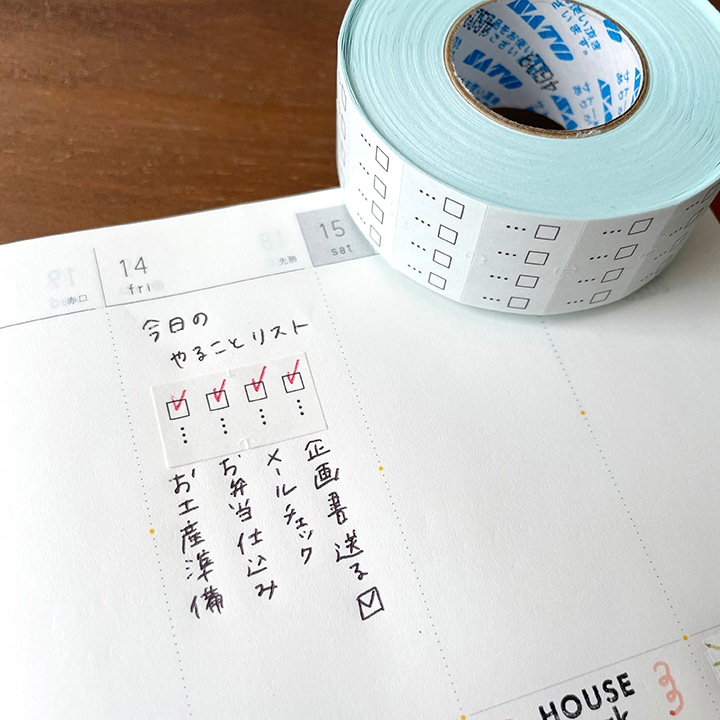 14
fri
先勝
15
sat
赤口
今日の
やることリスト
企画書送る☑
メールチェック
お弁当仕込み
お土産準備
SATO
SATO
HOUSE